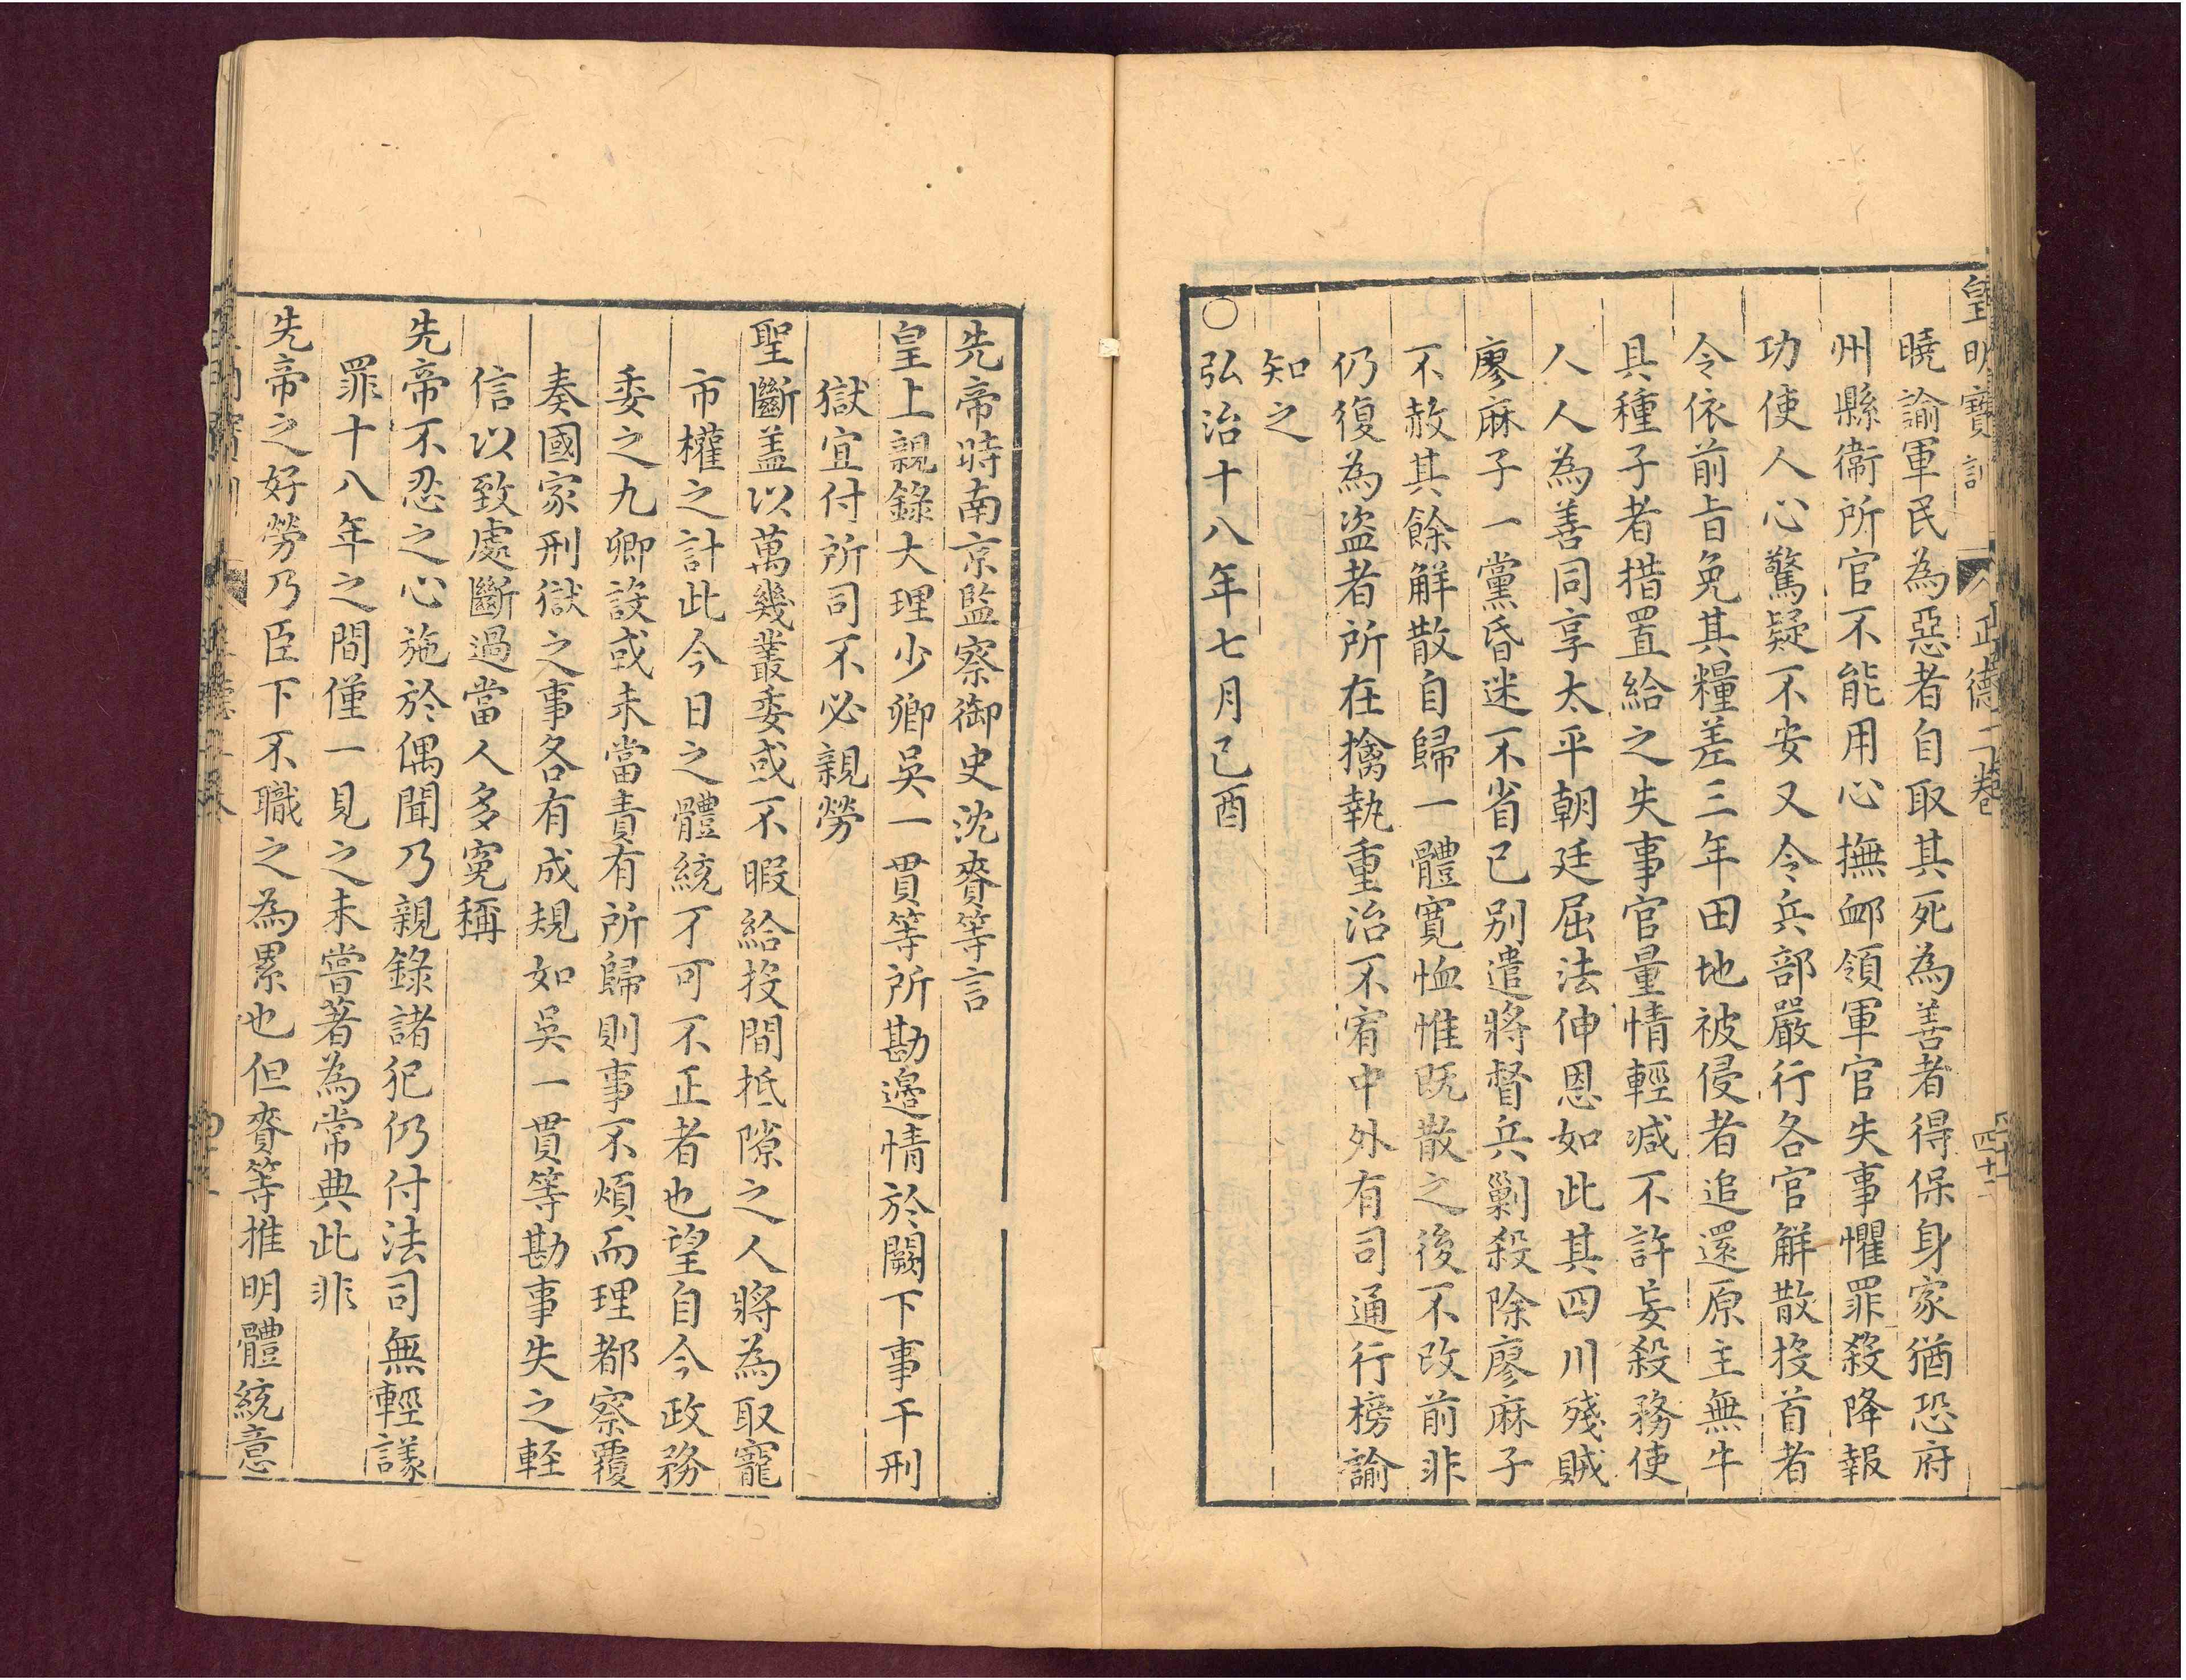 皇明寶訓 正德二卷 四十二
曉諭軍民為惡者自取其死為善者得保身家猶恐府
州縣衞所官不能用心撫卹領軍官失事懼罪殺降報
功使人心驚疑不安又令兵部嚴行各官解散投首者
令依前旨免其糧差三年田地被侵者追還原主無牛
具種子者措置給之失事官量情輕減不許妄殺務使
人人為善同享太平朝廷屈法伸恩如此其四川殘賊
廖麻子一黨昏迷不省已別遣將督兵剿殺除廖麻子
不赦其餘解散自歸一體寬恤惟既散之後不改前非
仍復為盜者所在擒執重治不宥中外有司通行榜諭
知之
○弘治十八年七月己酉
先帝時南京監察御史沈賚等言
皇上親錄大理少卿吳一貫等所勘邊情於闕下事干刑
獄宜付所司不必親勞
聖斷盖以萬幾叢委或不暇給投間抵隙之人將為取寵
市權之計此今日之體統不可不正者也望自今政務
委之九卿設或未當責有所歸則事不煩而理都察覆
奏國家刑獄之事各有成規如吳一貫等勘事失之輕
信以致處斷過當人多寃稱
先帝不忍之心施於偶聞乃親錄諸犯仍付法司無輕議
罪十八年之間僅一見之未嘗著為常典此非
先帝之好勞乃臣下不職之為累也但賚等推明體統意